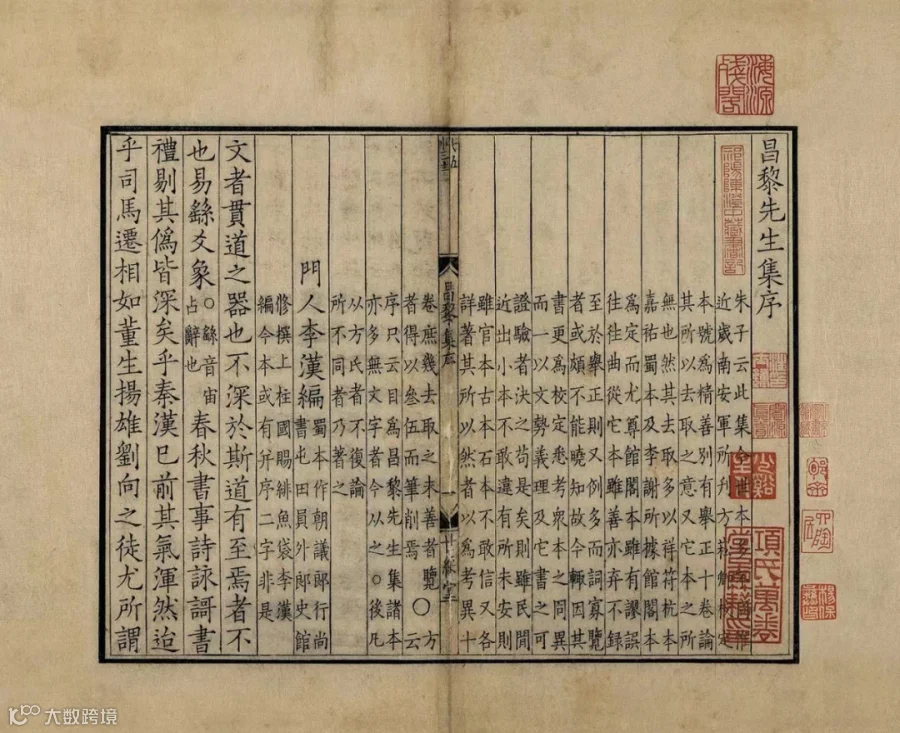 昌黎先生集序
朱子云此集今世本
近歲南安軍所刋方
本號為精善別有舉正十卷論
其所以去取之意又它本之所
無也然其去取多以祥符杭本
嘉祐蜀本及李謝所據館閣本
為定而尤尊館閣本雖有謬誤
往往曲從它本雖善亦弃不録
至於舉正則又例多而詞寡覽
者或頗不能曉知故今輒因其
書更為校定悉考衆本之同異
而一以文勢義理及它書之可
證驗者決之苟是矣則雖民間
近出小本不敢違有所未安則
雖官本古本石本不敢信又各
詳著其所以然者以為考異十
昌黎集序
一
卷庶幾去取之未善者覽〇方
者得以叅伍而筆削焉云
序只云目為昌黎先生集諸本
亦多無文字者今以之〇後凡
以方氏者不復論
所不同者乃著之
門人李漢編
蜀本作朝議郎行尚
書屯田員外郎史館
修撰上柱國賜緋魚袋李漢
編今本或有并序二字非是
文者貫道之器也不深於斯道有至焉者不
也易繇爻象
〇繇音宙
占辭也
春秋書事詩詠謌書
禮剔其偽皆深矣乎秦漢已前其氣渾然迨
乎司馬遷相如董生揚雄劉向之徒尤所謂
海源殘閣
祁陽陳澄中藏書記
少谿主人
項氏萬卷堂圖籍印
大数跨境